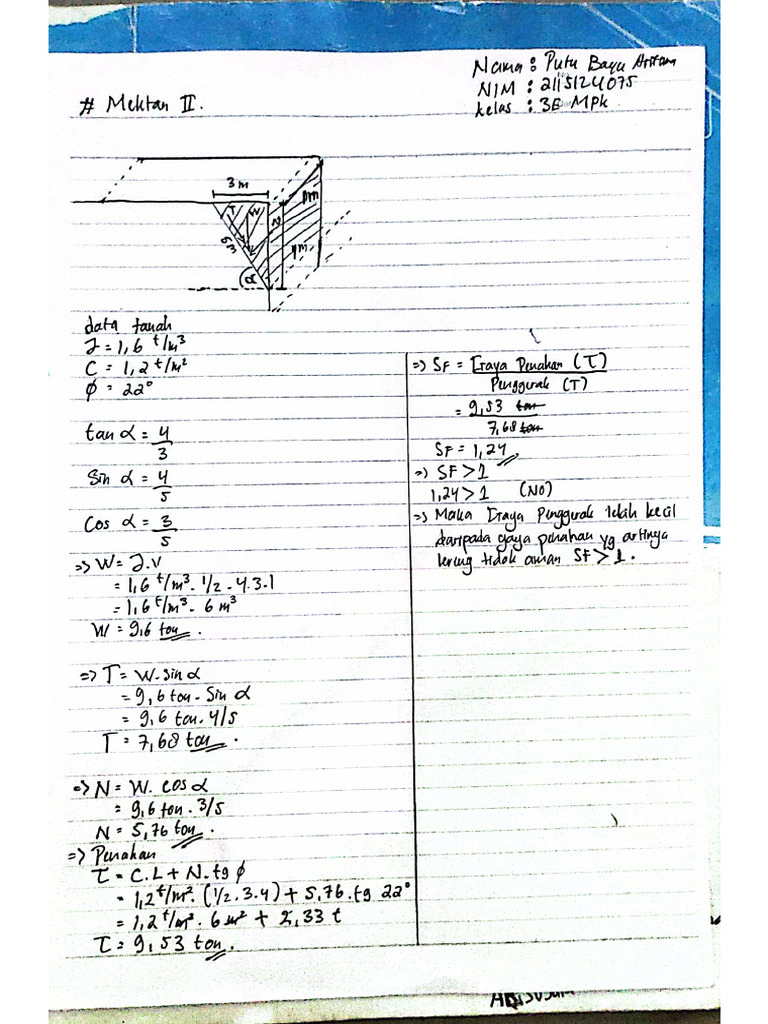 # Mektan II.
Nama : Putu Bayu
NIM : 2115124075
Kelas : 3E MPk
3 m
T
W
N
1m
5m
4m
α
data tanah
γ = 1,6 t/m³
C = 1,2 t/m²
φ = 22°
tan α = 4/3
Sin α = 4/5
Cos α = 3/5
=> W = γ.V
= 1,6 t/m³. 1/2 . 4.3.1
= 1,6 t/m³ . 6 m³
W = 9,6 ton.
=> T = W.sin α
= 9,6 ton. Sin α
= 9,6 ton. 4/5
T = 7,68 ton.
=> N = W. cos α
= 9,6 ton . 3/5
N = 5,76 ton.
=> Penahan
τ = C.L + N.tg φ
= 1,2 t/m². (1/2 .3.4) + 5,76.tg 22°
= 1,2 t/m². 6 m² + 2,33 t
τ = 9,53 ton.
=> SF = Gaya Penahan (τ)
Penggerak (T)
= 9,53 ton
7,68 ton
SF = 1,24
=> SF > 1
1,24 > 1 (NO)
=> Maka Gaya Penggerak lebih kecil
daripada gaya penahan yg artinya
lereng tidak aman SF > 1.